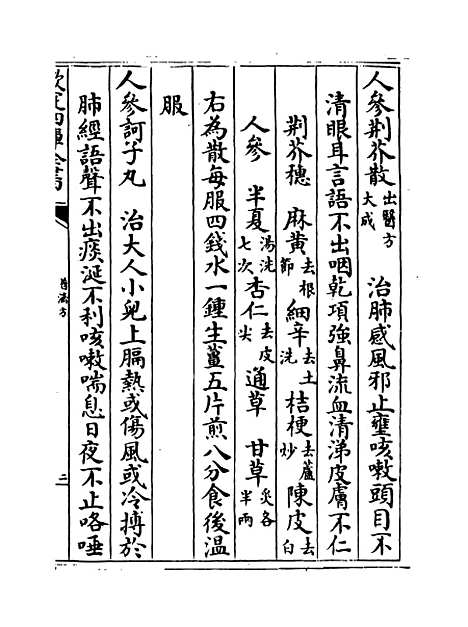 人參荆芥散出醫方大成　治肺感風邪上壅咳嗽頭目不
清眼耳言語不出咽乾項強鼻流血清涕皮膚不仁
荆芥穗　麻黄去根節　細辛去土洗　桔梗去蘆炒　陳皮去白
人參　半夏湯洗七次　杏仁去皮尖　通草　甘草炙各半兩
右為散每服四錢水一鍾生薑五片煎八分食後溫
服
人參訶子丸　治大人小兒上膈熱或傷風或冷搏於
肺經語聲不出痰涎不利咳嗽喘息日夜不止咯唾
欽定四庫全書
普濟方
二